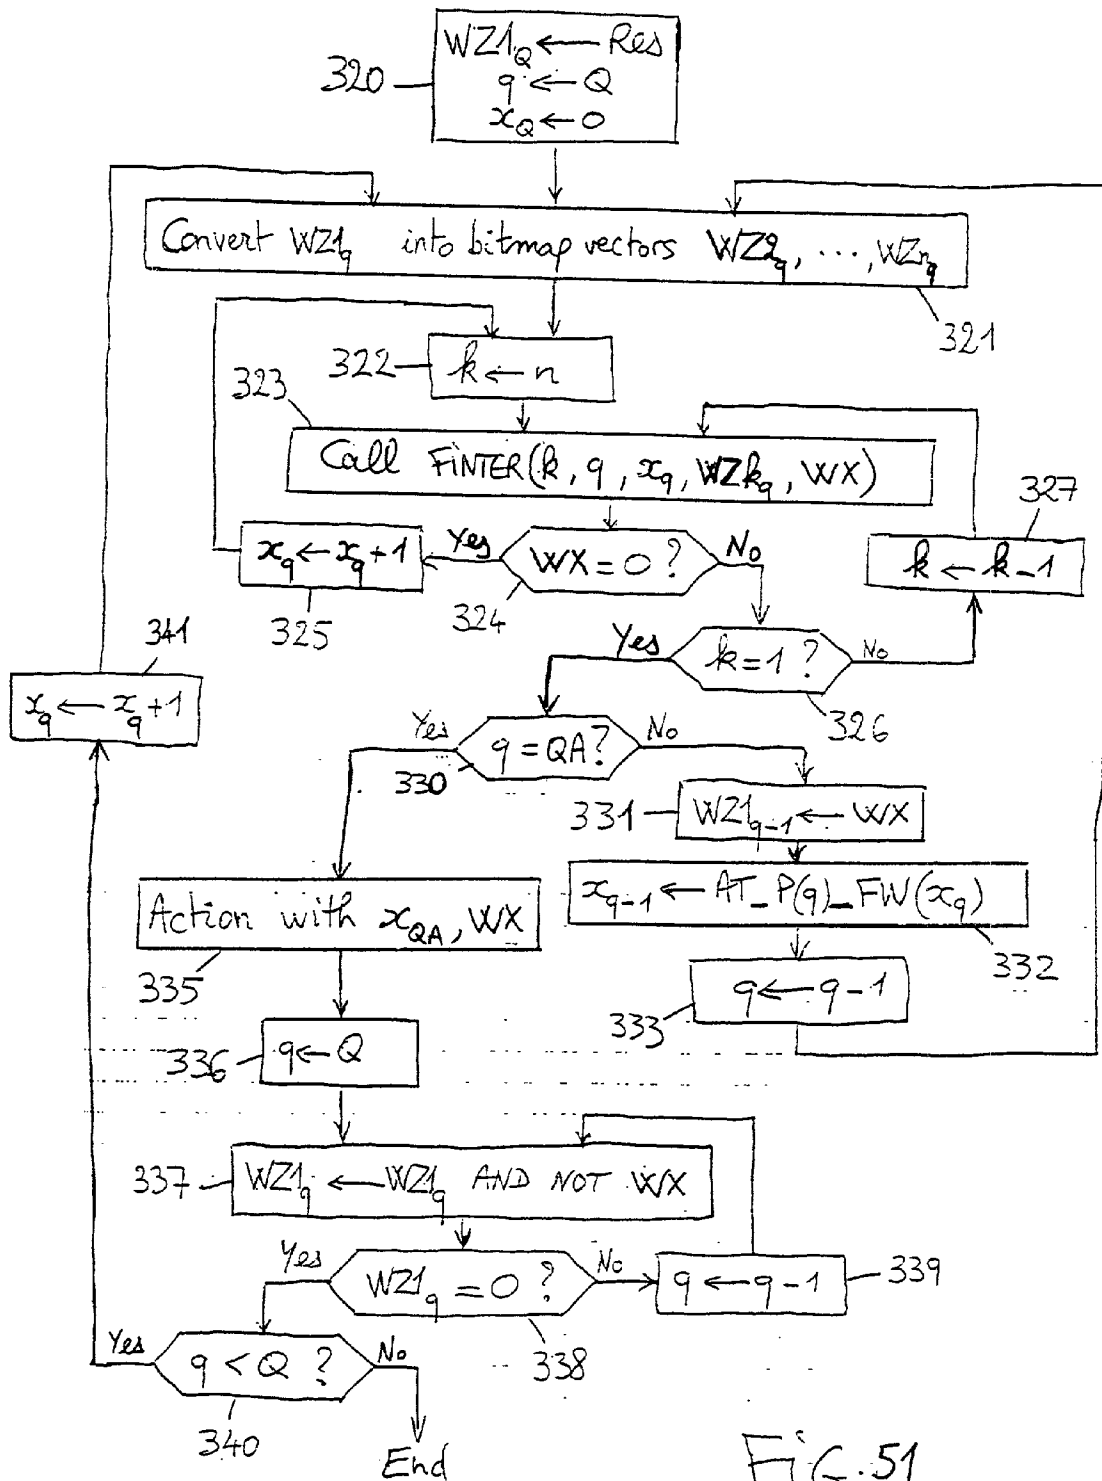 WZ1_Q ← Res
320
q ← Q
x_Q ← 0
Convert WZ1_q into bitmap vectors WZ2_q, ..., WZn_q
321
322
k ← n
323
Call FINTER(k, q, x_q, WZk_q, WX)
327
x_q ← x_q + 1
Yes
WX = 0 ?
No
k ← k - 1
325
324
341
Yes
k = 1 ?
No
x_q ← x_q + 1
326
Yes
q = QA ?
No
330
331
WZ1_q-1 ← WX
x_q-1 ← AT_P(q)_FW(x_q)
Action with x_QA, WX
332
335
q ← q - 1
333
336
q ← Q
337
WZ1_q ← WZ1_q AND NOT WX
Yes
WZ1_q = 0 ?
No
q ← q - 1
339
338
Yes
q < Q ?
No
340
End
FiG. 51